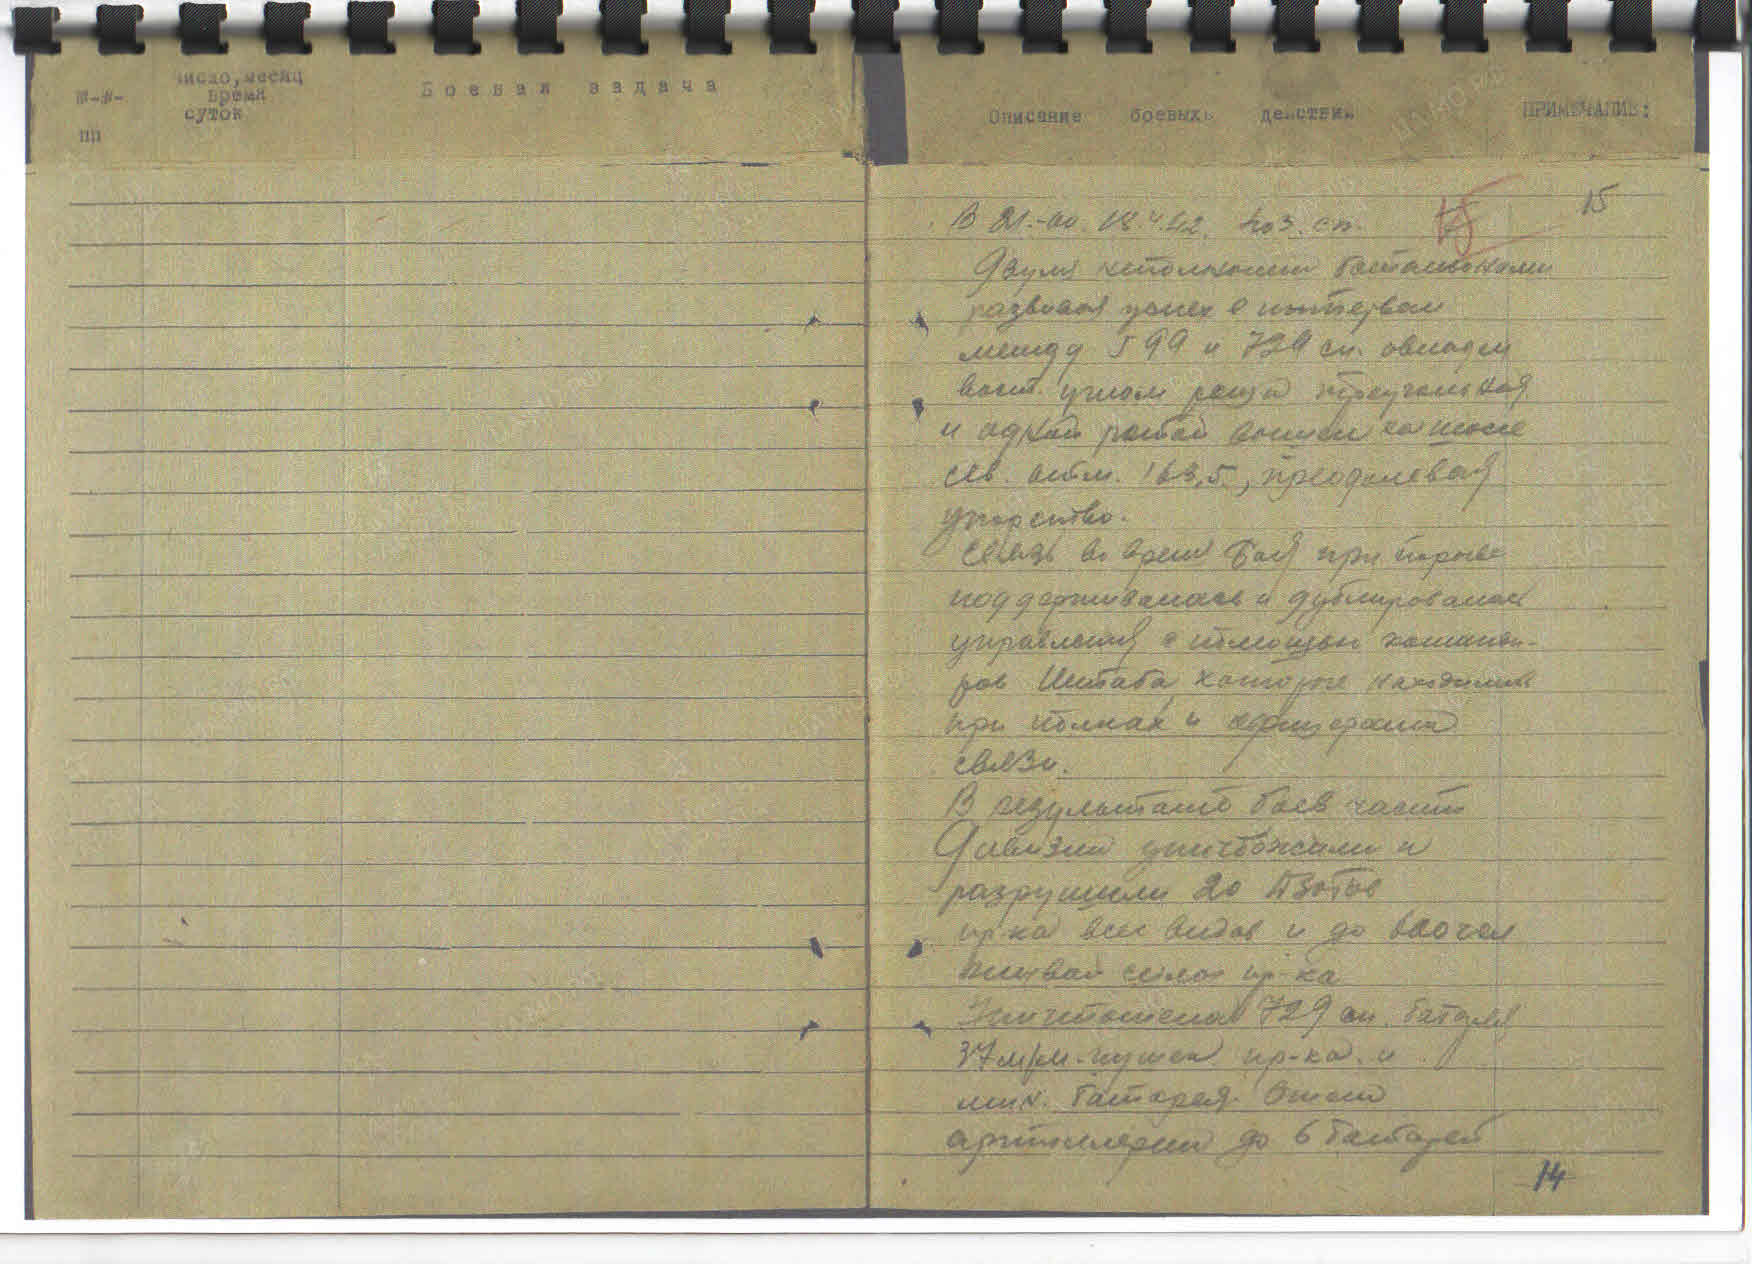 №-№-
пп
число, месяц
время
суток
Боевая задача
Описание боевых действий
ПРИМЕЧАНИЕ:
15
В 21-00. 18.4.42. 403. сп.
Двумя неполными батальонами
развивая успех в интервале
между 599 и 729 сп. овладел
вост. углом рощи треугольная
и одной ротой вышел на шоссе
сев. отм. 163,5, преодолевая
упорство.
Связь во время боя при порыве
поддерживалась и дублировалась
управления с помощью команди-
ров Штаба которые находились
при полках и офицерами
связи.
В результате боев части
Дивизии уничтожили и
разрушили 20 ДЗОТов
пр-ка всех видов и до 800 чел
живой силы пр-ка
Уничтожена 729 сп. батарея
37 м/м. пушек пр-ка. и
мин. батарея. Огнем
артиллерии до 6 батарей
14